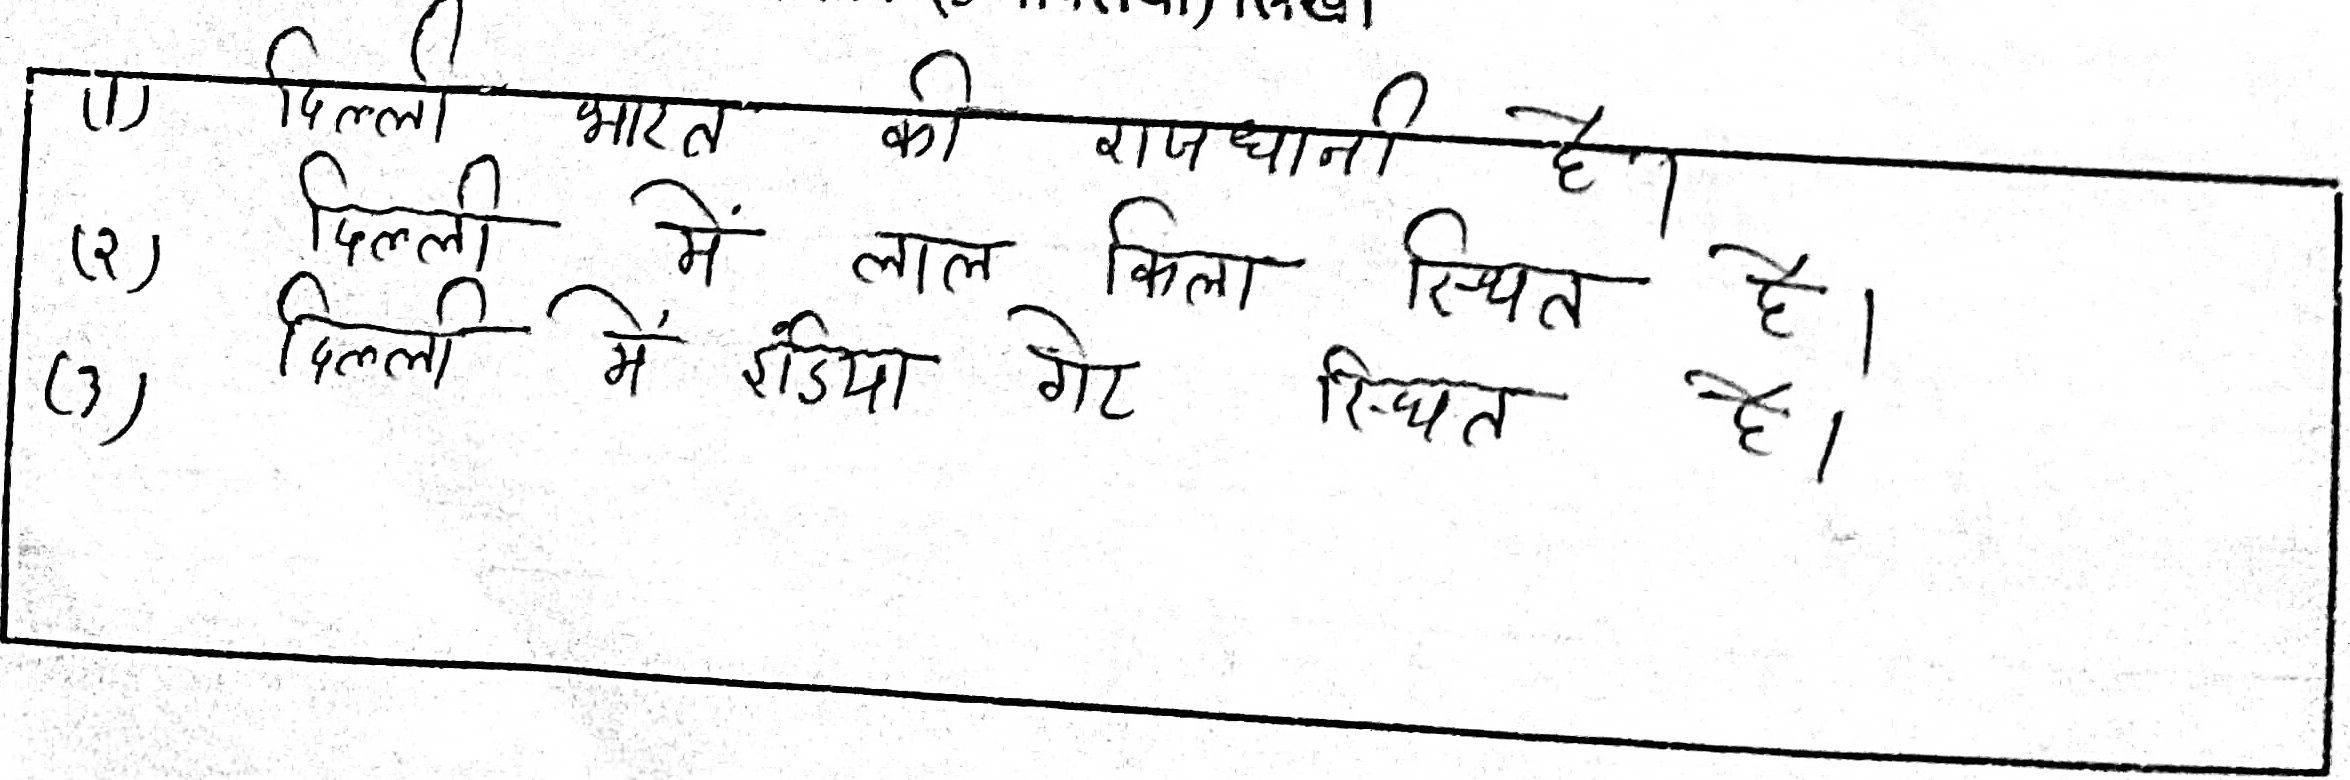 लिखो।
(1) दिल्ली भारत की राजधानी है।
(२) दिल्ली में लाल किला स्थित है।
(3) दिल्ली में इंडिया गेट स्थित है।